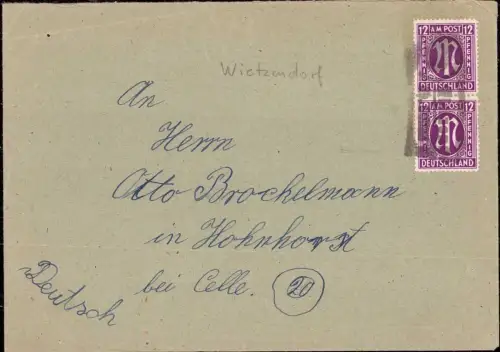 Wietzendorf
12 AM POST 12
PFENNIG PFENNIG
M
DEUTSCHLAND
12 AM POST 12
PFENNIG PFENNIG
M
DEUTSCHLAND
An
Herrn
Otto Brockelmann
in Hohnhorst
bei Celle. 20
Deutsch